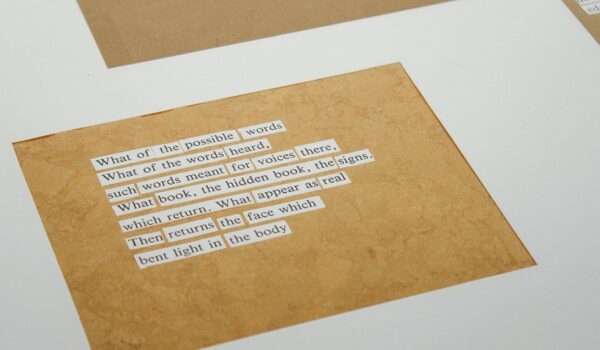 What of the possible words
What of the words heard,
such words meant for voices there,
What book, the hidden book, the signs.
which return. What appear as real
Then returns the face which
bent light in the body